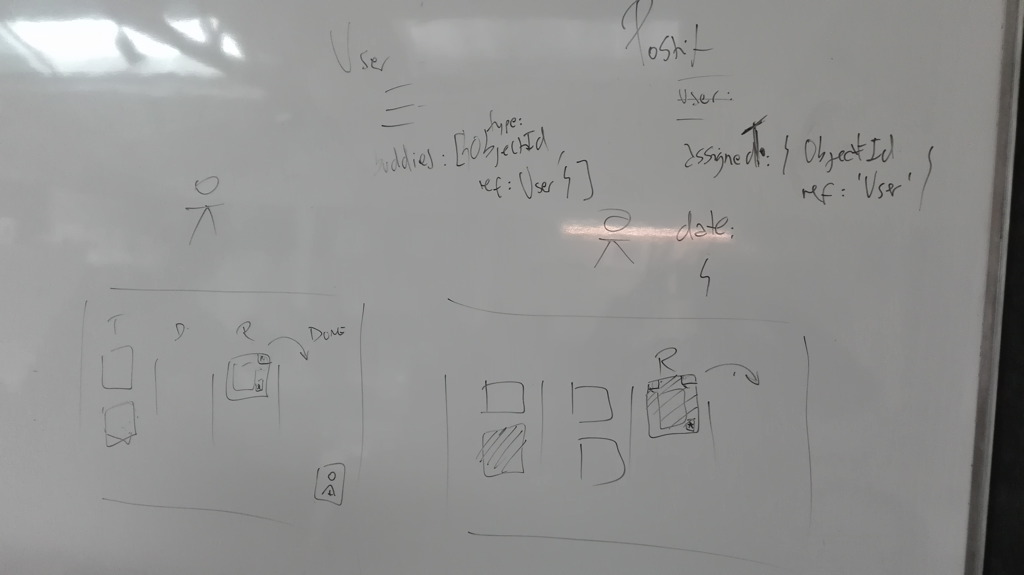 User
buddies: [{ type: ObjectId,
ref: User } ]
Postit
user:
assignedT: { ObjectId
ref: 'User' }
date:
}
T D. R DONE
R